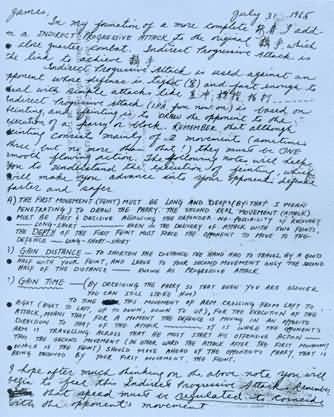 James,
July 31, 1965
In my formation of a more complete 振藩 I add
on a INDIRECT PROGRESSIVE ATTACK to the original which
close quarter combat. Indirect Progressive Attack is
the link to achieve
Indirect Progressive Attack is used against an
opponent whose defense is tight and fast enough to
deal with simple attacks like
Indirect Progressive Attack (IPA from now on) is based on
feinting, and feinting is to DRAW the opponent to the
execution of a parry or block. REMEMBER that although
feinting consist mainly of 2 movements (sometimes
three, but no more than that) they must be in ONE
smooth flowing action. The following notes will help
you to understand the operation of feinting, which
will make you advance into your opponent's defense
faster and safer
A) THE FIRST MOVEMENT (FEINT) MUST BE LONG AND DEEP (BY THAT I MEAN
PENETRATING) TO DRAW THE PARRY. THE SECOND REAL MOVEMENT (ATTACK)
MUST BE FAST & DECISIVE ALLOWING THE DEFENDER NO POSSIBILITY OF RECOVERY
LONG-SHORT EVEN IN THE DELIVERY OF ATTACK WITH TWO FEINTS,
THE DEPTH OF THE FIRST FEINT MUST FORCE THE OPPONENT TO MOVE TO THE
DEFENSE — LONG-SHORT-SHORT
1) GAIN DISTANCE — TO SHORTEN THE DISTANCE THE HAND HAS TO TRAVEL BY A GOOD
HALF WITH YOUR FEINT, AND LEAVE TO YOUR SECOND MOVEMENT ONLY THE SECOND
HALF OF THE DISTANCE — AS PROGRESSIVE ATTACK
2) GAIN TIME — (BY DECEIVING THE PARRY SO THAT EVEN YOU ARE SLOWER
CAN STILL SCORE HIM)
THIS MOVEMENT OF ARM CROSSING FROM LEFT TO
RIGHT (RIGHT TO LEFT, UP TO DOWN, DOWN TO UP), FOR THE EXECUTION OF THE
ATTACK, MEANS THAT FOR A MOMENT THE DEFENSE IS MOVING IN AN OPPOSITE
DIRECTION TO THAT OF THE ATTACK — IT IS WHILE THE OPPONENT'S
ARM IS TRAVELLING ACROSS THAT WE MUST START AN OFFENSIVE ACTION —
THUS THE SECOND MOVEMENT (IN OTHER WORD THE ATTACK AFTER THE FIRST MOVEMENT
WHICH IS THE FEINT) SHOULD MOVE AHEAD OF THE OPPONENT'S PARRY THAT IS
BEING PROVOKED BY YOUR FIRST MOVEMENT THE FEINT.
I hope after much thinking on the above note you will
begin to feel this Indirect Progressive Attack. Remember
that speed must be regulated to coincide
with the opponent's movement.